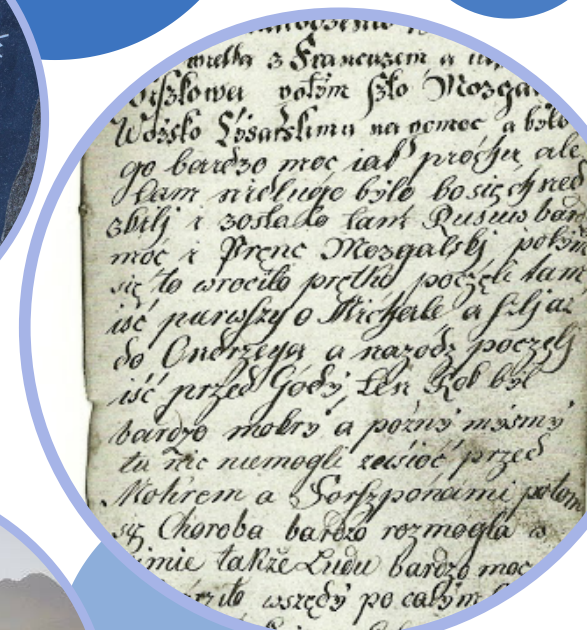 wielka z Francuzem a
potym szło Mozga
Wojsko na pomoc a było
go bardzo moc iak prochu ale
tam niedługo było bo sich
zbili i zostało tam Rusuw bar
moc i Prenc Mozgalskj potym
się to wrociło prętko poczęli tam
iść pierwszy o Michale a szlj aż
do Ondrzeya a nazodz poczęlj
iść przed Gody, ten Rok był
bardzo mokry a pozny myśmy
tu nic niemogli zasioć przed
Mokrem a Forszponami potom
się Choroba bardzo rozmogla w
zimie także Ludu bardzo moc
wszędy po całym